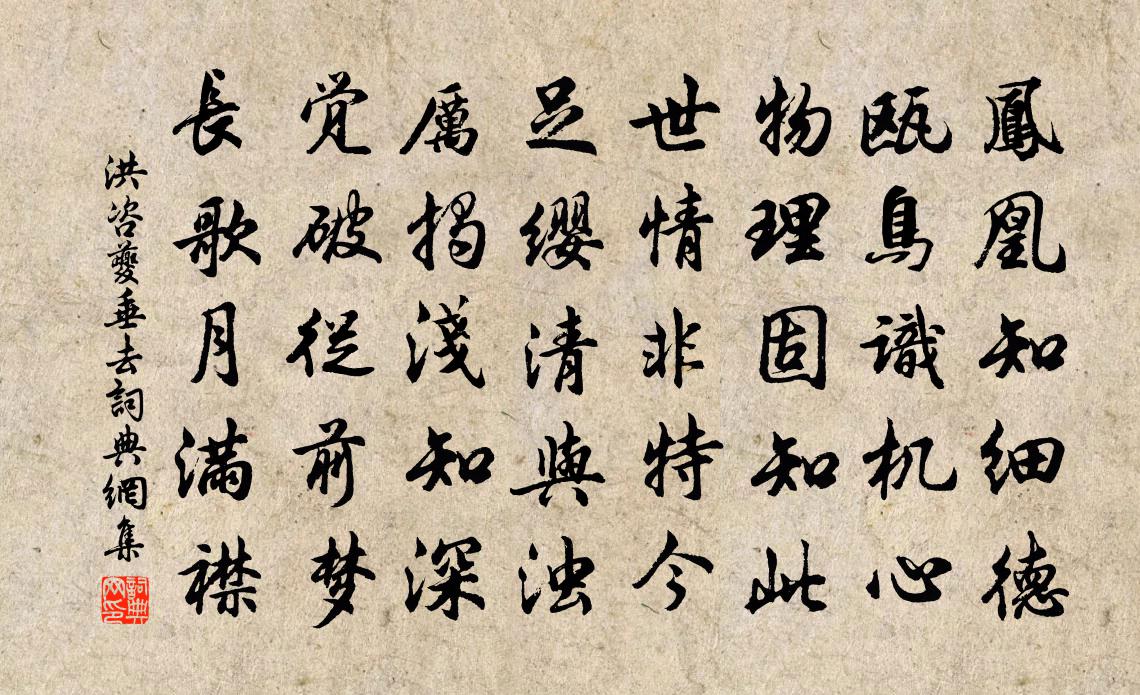 鳳凰知細德
瓯鳥識机心
物理固知此
世情非特今
足纓清與浊
厲揭淺知深
觉破從前梦
長歌月满襟
洪咨夔垂去詞典網集
詞典网印